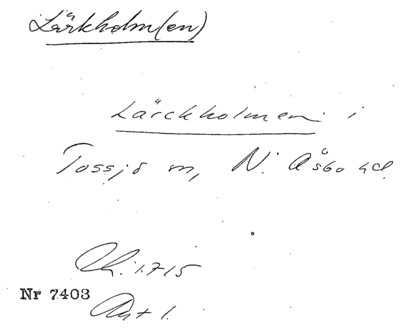 Lärkholm(en)
Lärckholmen i
Tossjö m, N. Åsbo hd.
Ch. 1715
Nr 7403
Avt 1.